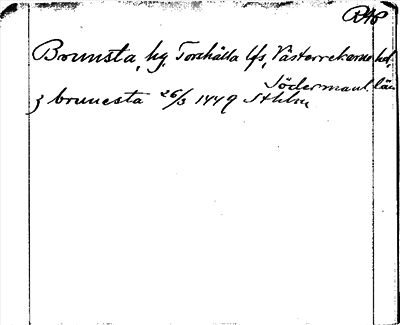 Brunsta, hg, Torshälla lfs, Västerrekarne hd,
Södermanl. län
j brunesta 26/3 1449 Sthlm